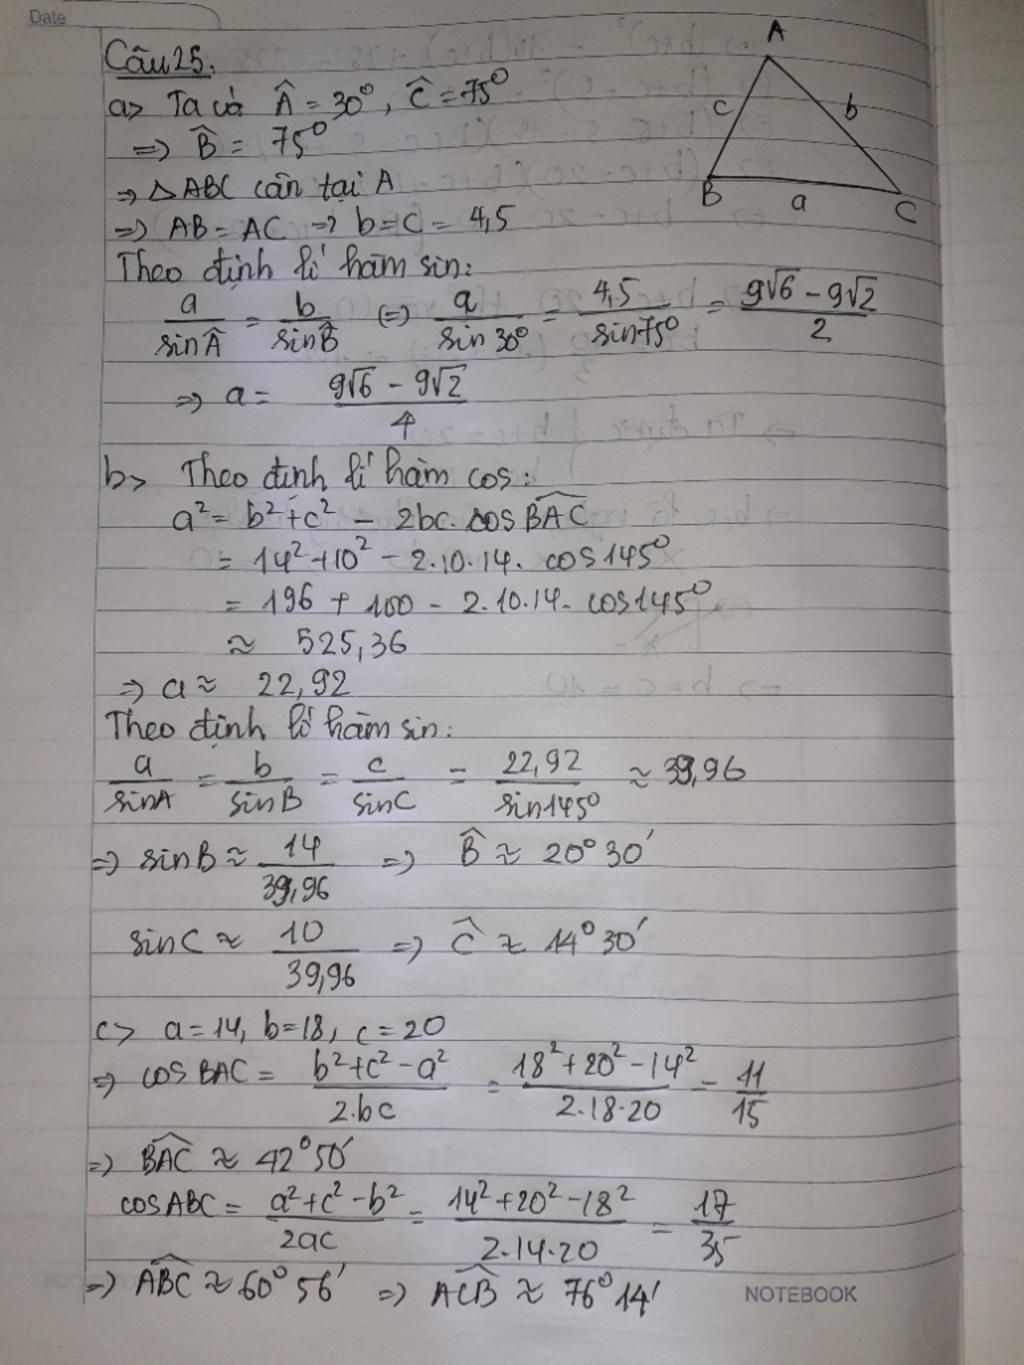 Date
Câu 25.
A
B
C
c
b
a
a> Ta có Â = 30°, Ĉ = 75°
=> B̂ = 75°
=> △ABC cân tại A
=> AB = AC => b = c = 4,5
Theo định lí hàm sin:
a/sinÂ = b/sinB̂ (=) a/sin 30° = 4,5/sin75° = (9√6 - 9√2)/2
=> a = (9√6 - 9√2)/4
b> Theo định lí hàm cos:
a² = b² + c² - 2bc. cos BAC
= 14² + 10² - 2.10.14. cos 145°
= 196 + 100 - 2.10.14. cos 145°
≈ 525,36
=> a ≈ 22,92
Theo định lí hàm sin:
a/sinA = b/sinB = c/sinC = 22,92/sin145° ≈ 39,96
=> sinB ≈ 14/39,96 => B̂ ≈ 20°30'
sinC ≈ 10/39,96 => Ĉ ≈ 14°30'
c> a = 14, b = 18, c = 20
=> cos BAC = (b² + c² - a²)/2.bc = (18² + 20² - 14²)/2.18.20 = 11/15
=> BAC ≈ 42°50'
cosABC = (a² + c² - b²)/2ac = (14² + 20² - 18²)/2.14.20 = 17/35
=> ABC ≈ 60°56' => ACB ≈ 76°14'
NOTEBOOK